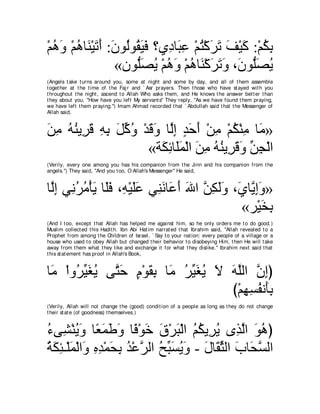 بِكُمْ: كَيْفَ تَرَكْتُمْ عِبَادِي؟ فَيَقُولُونَ: أَتَيْنَاهُمْ وَهُمْ
يُصَلُّونَ، وَتَرَكْنَاهُمْ وَهُمْ يُصَلُّونَ»
(Angels take turns around you, some at night and some by day, and all of them assemble together at the time of the Fajr and `Asr prayers. Then those who have stayed with you throughout the night, ascend to Allah Who asks them, and He knows the answer better than they about you, "How have you left My servants'' They reply, "As we have found them praying, we have left them praying.'') Imam Ahmad recorded that `Abdullah said that the Messenger of Allah said,
«مَا مِنْكُمْ مِنْ أَحَدٍ إِلَّا وَقَدْ وُكِّلَ بِهِ قَرِينُهُ مِنَ
الْجِنِّ وَقَرِينُهُ مِنَ الْمَلَائِكَة»
(Verily, every one among you has his companion from the Jinn and his companion from the angels.'') They said, "And you too, O Allah's Messenger'' He said,
«وَإِيَّايَ، وَلكِنَّ اللهَ أَعَانَنِي عَلَيْهِ، فَلَا يَأْمُرُنِي إِلَّا
بِخَيْر»
(And I too, except that Allah has helped me against him, so he only orders me to do good.) Muslim collected this Hadith. Ibn Abi Hatim narrated that Ibrahim said, "Allah revealed to a Prophet from among the Children of Israel, `Say to your nation: every people of a village or a house who used to obey Allah but changed their behavior to disobeying Him, then He will take away from them what they like and exchange it for what they dislike.'' Ibrahim next said that this statement has proof in Allah's Book,
(إِنَّ اللَّهَ لاَ يُغَيِّرُ مَا بِقَوْمٍ حَتَّى يُغَيِّرُواْ مَا
بِأَنفُسِهِمْ)
(Verily, Allah will not change the (good) condition of a people as long as they do not change their state (of goodness) themselves.)
(هُوَ الَّذِى يُرِيكُمُ الْبَرْقَ خَوْفًا وَطَمَعًا وَيُنْشِىءُ
السَّحَابَ الثِّقَالَ - وَيُسَبِّحُ الرَّعْدُ بِحَمْدِهِ وَالْمَلَـئِكَةُ